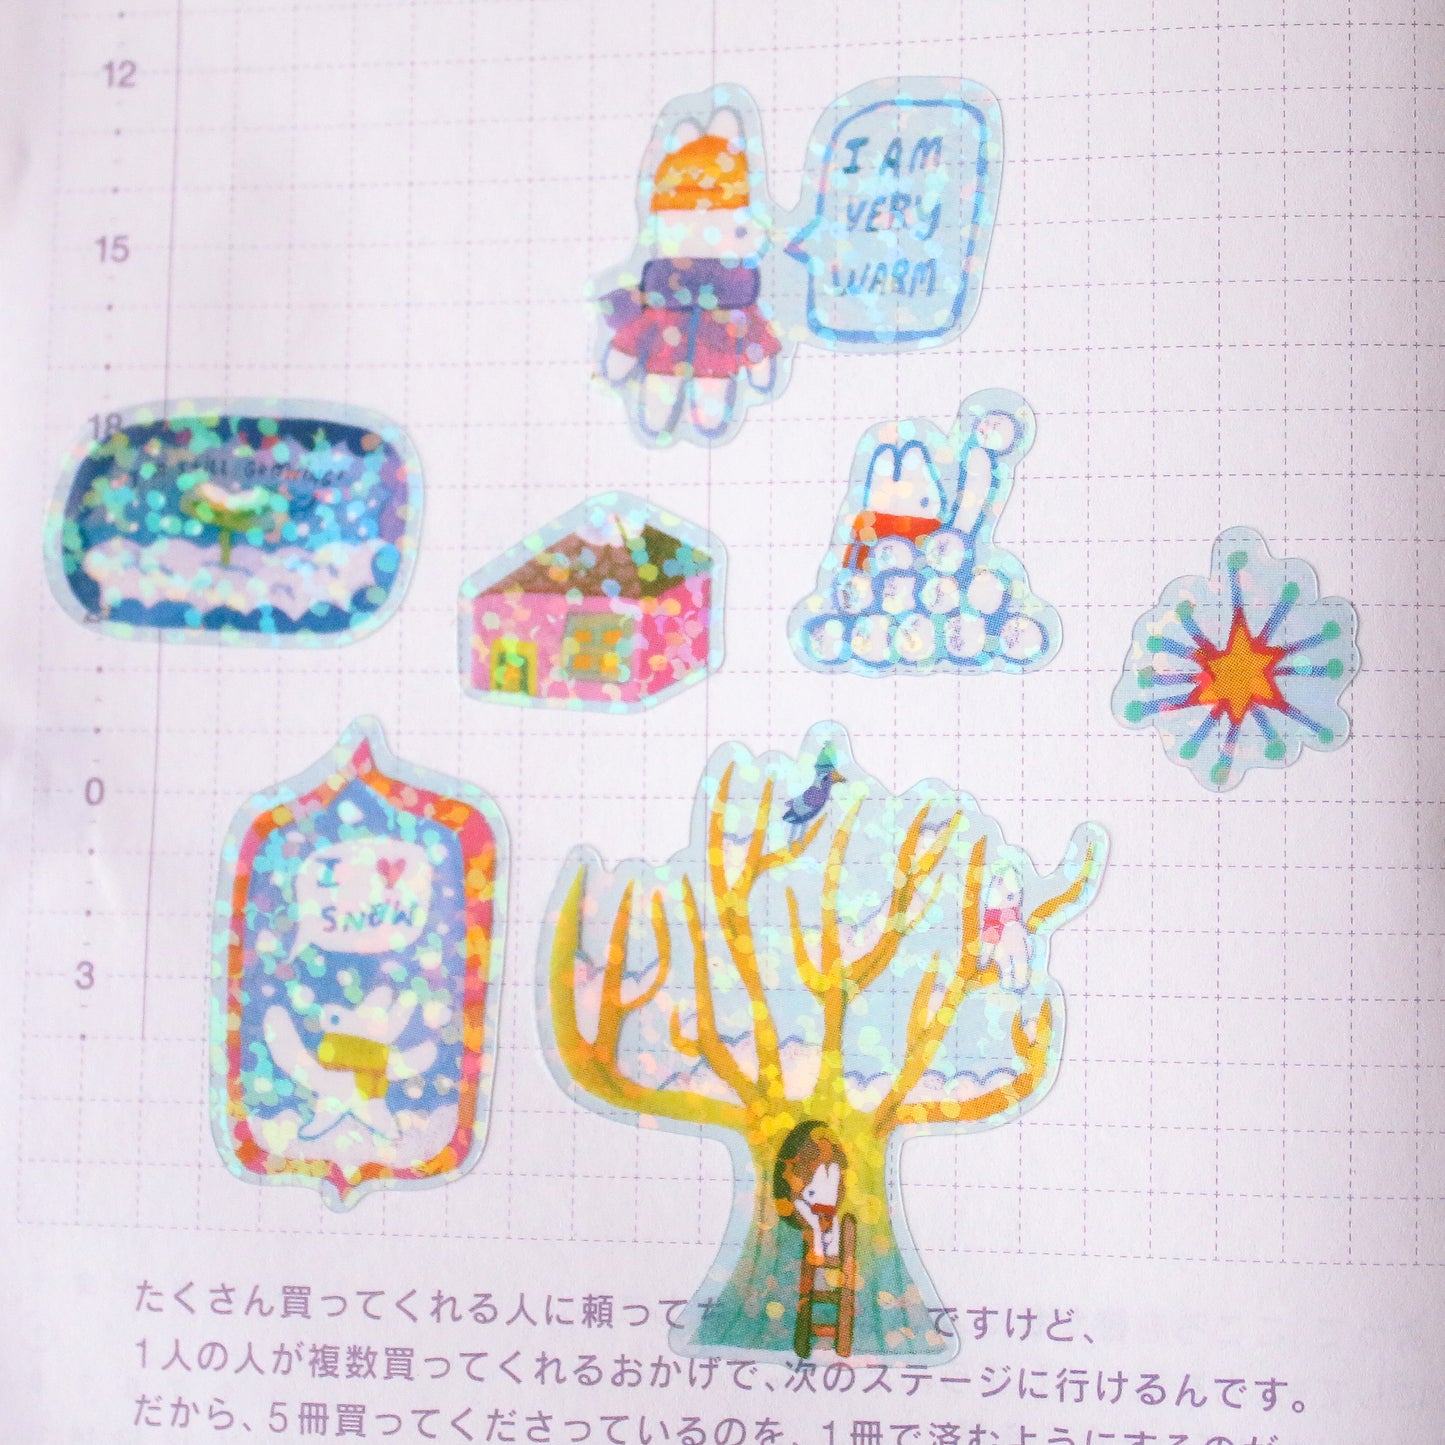 12
I AM
VERY
WARM
15
18
STILL GROWING!
0
I ♥
SNOW
3
たくさん買ってくれる人に頼って ですけど、
1人の人が複数買ってくれるおかげで、次のステージに行けるんです。
だから、5冊買ってくださっているのを、1冊で済むようにするのが